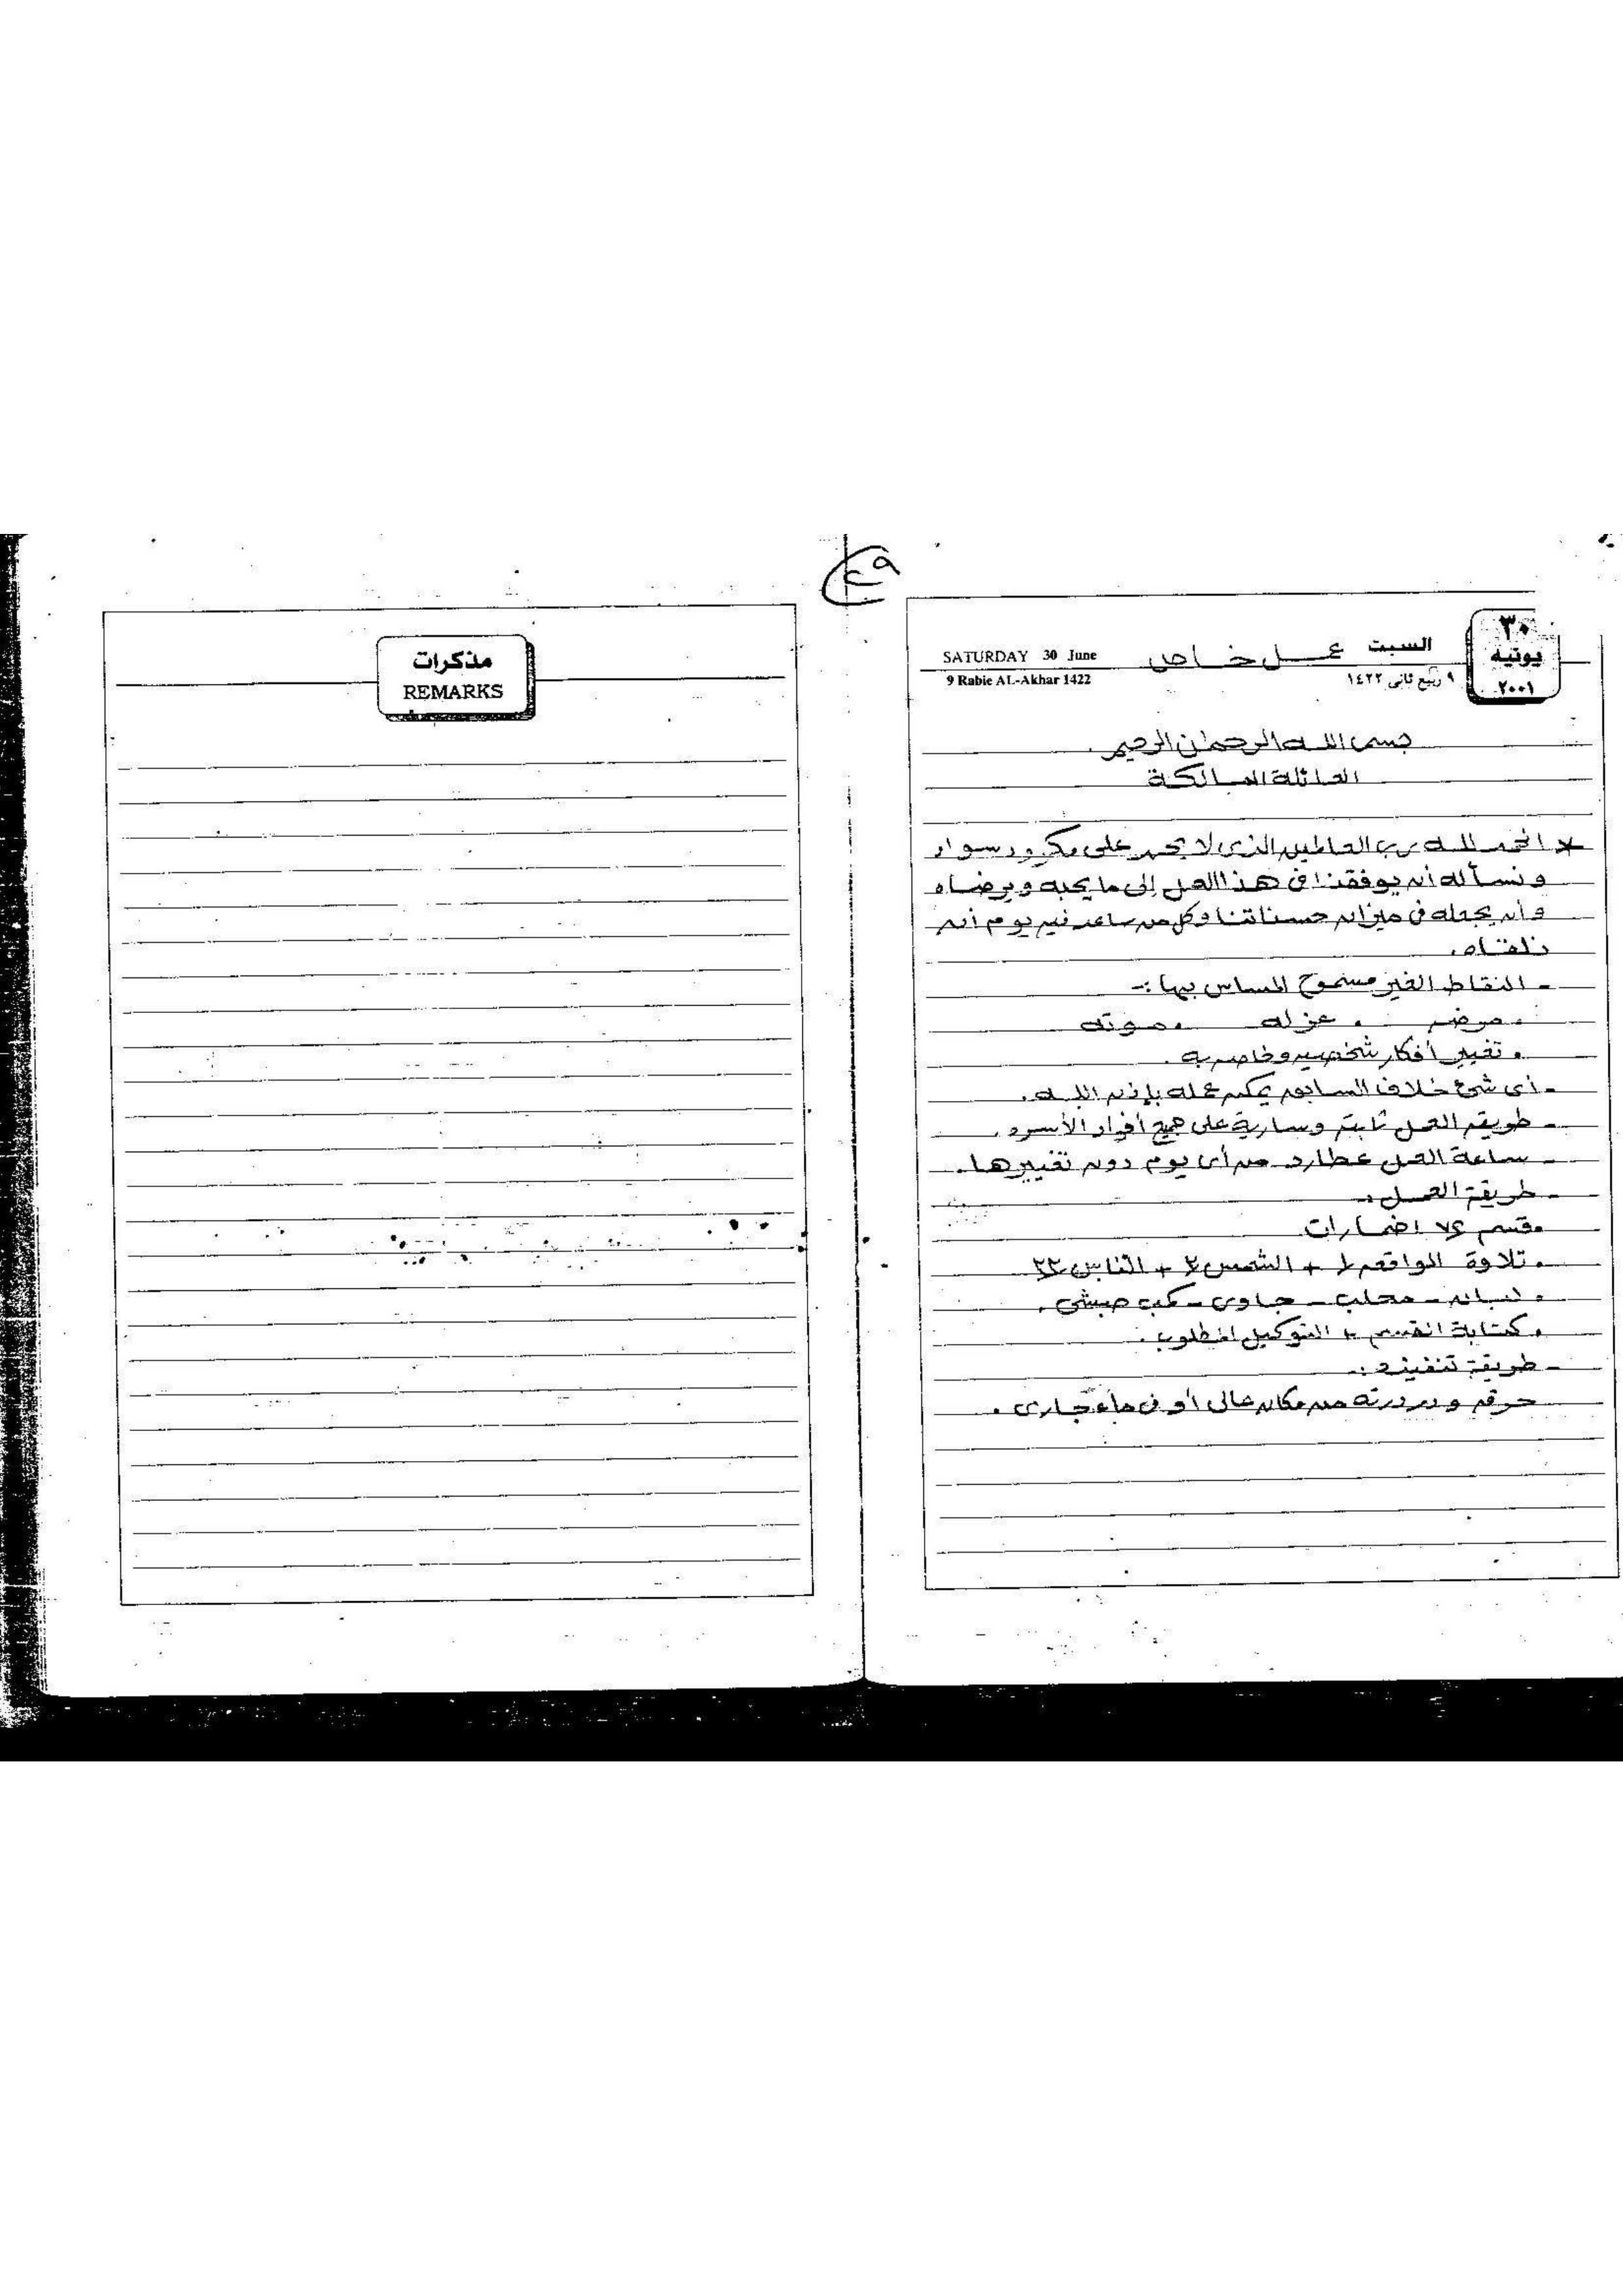 ٢٩
٣٠
يونيه
٢٠٠١
السبت
عمل خاص
SATURDAY 30 June
٩ ربيع ثانى ١٤٢٢
9 Rabie AL-Akhar 1422
بسم الله الرحمان الرحيم.
العائلة المالكة
* الحمد لله رب العالمين الذى لا يحمد على مكروه سواه
و نسأله أن يوفقنا فى هذا العمل إلى ما يحبه ويرضاه
وأن يجعله فى ميزان حسناتنا وكل من ساعد فيه يوم أن
نلقاه.
- النقاط الغير مسموح المساس بها :-
. مرضه . عزله . موته
. تغيير أفكار شخصيه وخاصه به .
- أى شئ خلاف السابق يمكن عمله بإذن الله .
- طريقة العمل ثابته وسارية على جميع أفراد الأسره .
- ساعة العمل عطارد من أى يوم دون تغييرها .
- طريقة العمل :-
. قسم ٧٤ اضمارات
. تلاوة الواقعه ١ + الشمس ٧ + الناس ٢٣
. لبان - محلب - جاوى - كعب حبشى .
. كتابة القسم + التوكيل المطلوب .
- طريقة تنفيذه :-
حرقه و دردرته من مكان عالى أو فى ماء جارى .
مذكرات
REMARKS